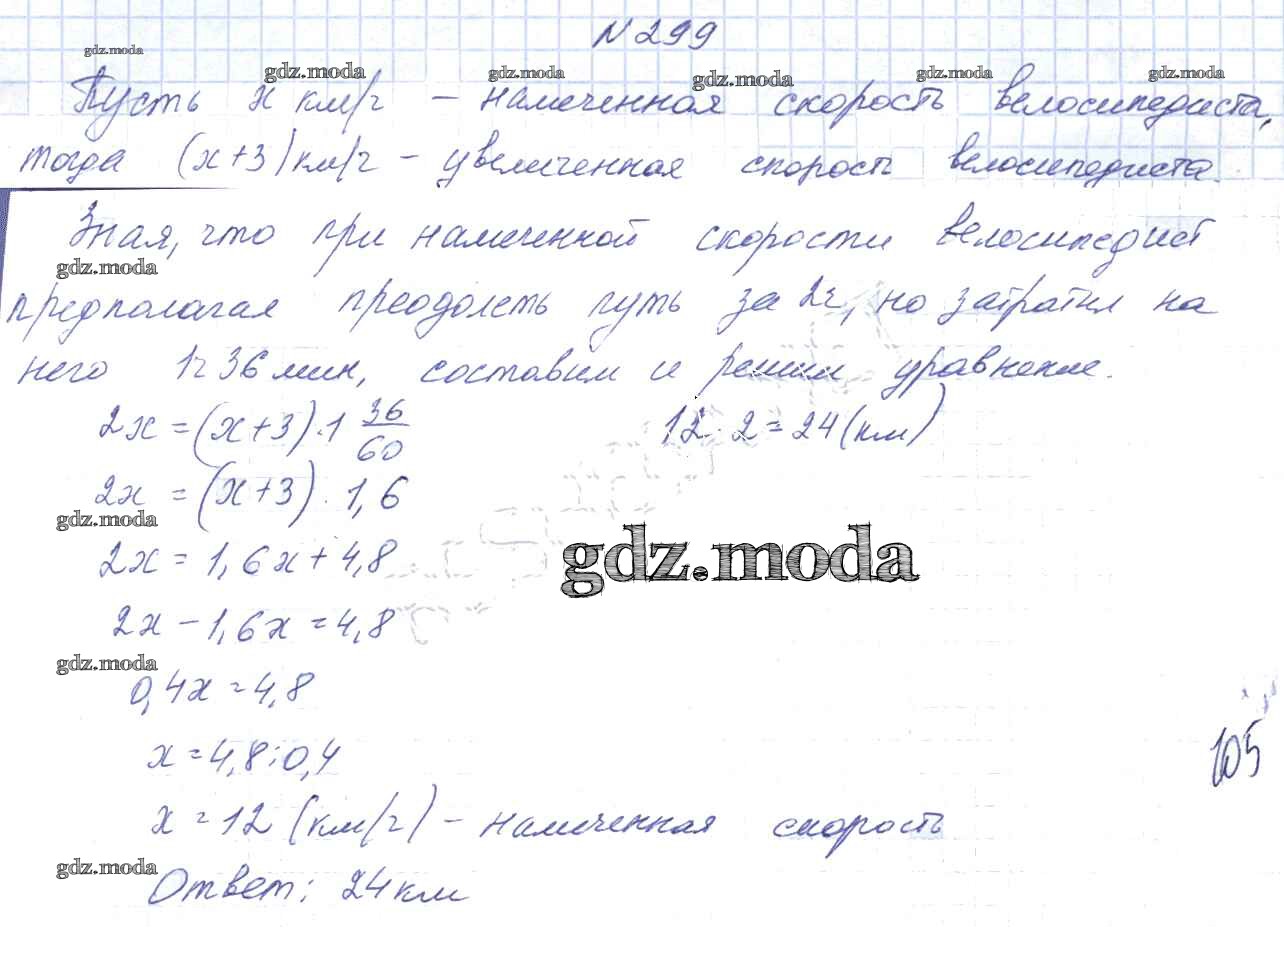 N 299
gdz.moda
gdz.moda gdz.moda gdz.moda gdz.moda gdz.moda
Пусть x км/ч – намеченная скорость велосипедиста,
тогда (x+3) км/ч – увеличенная скорость велосипедиста.
Зная, что при намеченной скорости велосипедист
gdz.moda
предполагая преодолеть путь за 2ч, но затратил на
него 1ч 36 мин, составим и решим уравнение.
2x = (x+3)·1 36/60 12·2=24(км)
2x = (x+3)·1,6
gdz.moda
2x = 1,6x + 4,8
gdz.moda
2x – 1,6x = 4,8
gdz.moda
0,4x = 4,8
x = 4,8:0,4
105
x = 12 (км/ч) – намеченная скорость
gdz.moda
Ответ: 24 км